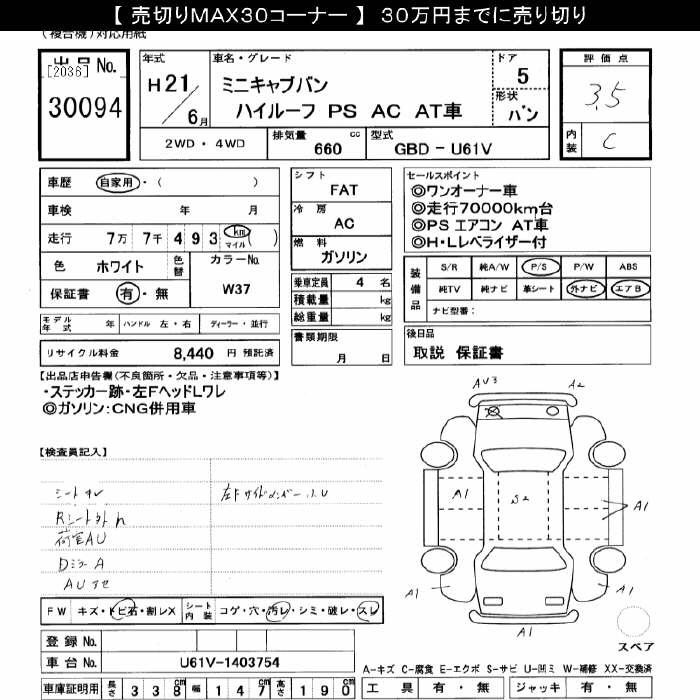 【 売切りMAX30コーナー 】 30万円までに売り切り
(複合機)対応用紙
出品No.
[2036]
30094
年式
H21/6月
車名・グレード
ミニキャブバン
ハイルーフ PS AC AT車
ドア
5
形状
バン
評価点
3.5
内装
C
2WD・4WD
排気量 cc
660
型式
GBD - U61V
車歴 自家用・( )
車検 年 月
走行 7万 7千 4 9 3 km マイル ( )
色 ホワイト 色替
カラーNo.
W37
保証書 有・無
シフト
FAT
冷房
AC
燃料
ガソリン
乗車定員 4 名
積載量 kg
総重量 kg
書類期限
月 日
セールスポイント
◎ワンオーナー車
◎走行70000km台
◎PS エアコン AT車
◎H・Lレベライザー付
装備品
S/R 純A/W P/S P/W ABS
純TV 純ナビ 革シート 外ナビ エアB
ナビ型番:
後日品
取説 保証書
モデル年式 年 ハンドル 左・右 ディーラー・並行
リサイクル料金 8,440 円 預託済
【出品店申告欄(不良箇所・欠品・注意事項等)】
・ステッカー跡・左FヘッドLワレ
◎ガソリン:CNG併用車
【検査員記入】
荷室AU
Dミラー A
FW キズ・トビ石・割レX シート内装 コゲ・穴・汚レ・シミ・破レ・スレ
登録No.
車台No. U61V-1403754
車庫証明用 長さ 338cm 幅 147cm 高さ 190cm
AU3
A2
A1
S2
A1
A1
A1
A1
スペア
A-キズ C-腐食 E-エクボ S-サビ U-凹ミ W-補修 XX-交換済
工具 有・無 ジャッキ 有・無